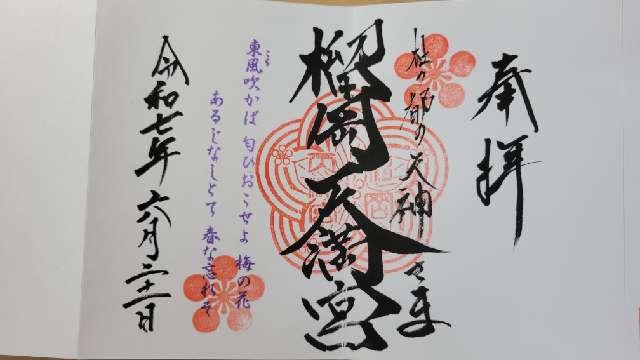 奉拝
杜の都の天神さま
榴岡天満宮
こち
東風吹かば 匂ひおこせよ 梅の花
あるじなしとて 春な忘れそ
令和七年六月二十一日